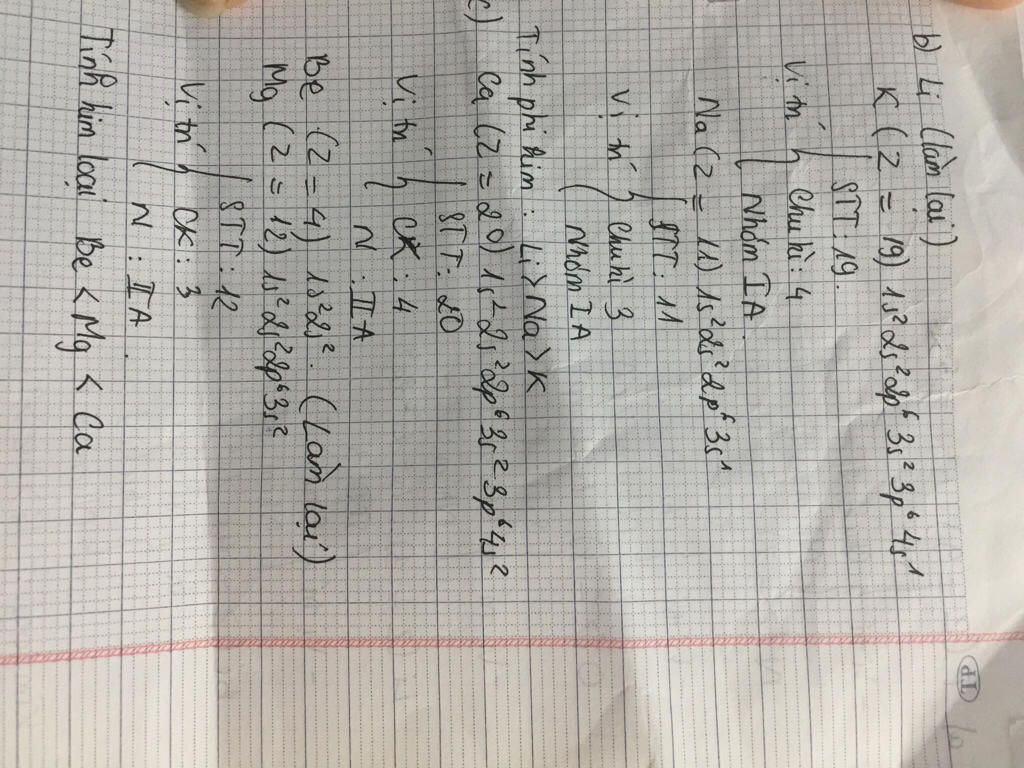 b) Li (làm lại)
K (Z = 19) 1s² 2s² 2p⁶ 3s² 3p⁶ 4s¹
Vị trí { STT: 19.
Chu kì: 4
Nhóm IA.
Na (Z = 11) 1s² 2s² 2p⁶ 3s¹
Vị trí { STT: 11
Chu kì 3
Nhóm IA
Tính phi kim: Li > Na > K
c) Ca (Z = 20) 1s² 2s² 2p⁶ 3s² 3p⁶ 4s²
Vị trí { STT: 20
CK: 4
N: IIA
Be (Z = 4) 1s² 2s². (Làm lại)
Mg (Z = 12) 1s² 2s² 2p⁶ 3s²
Vị trí { STT: 12
CK: 3
N: IIA.
Tính kim loại Be < Mg < Ca